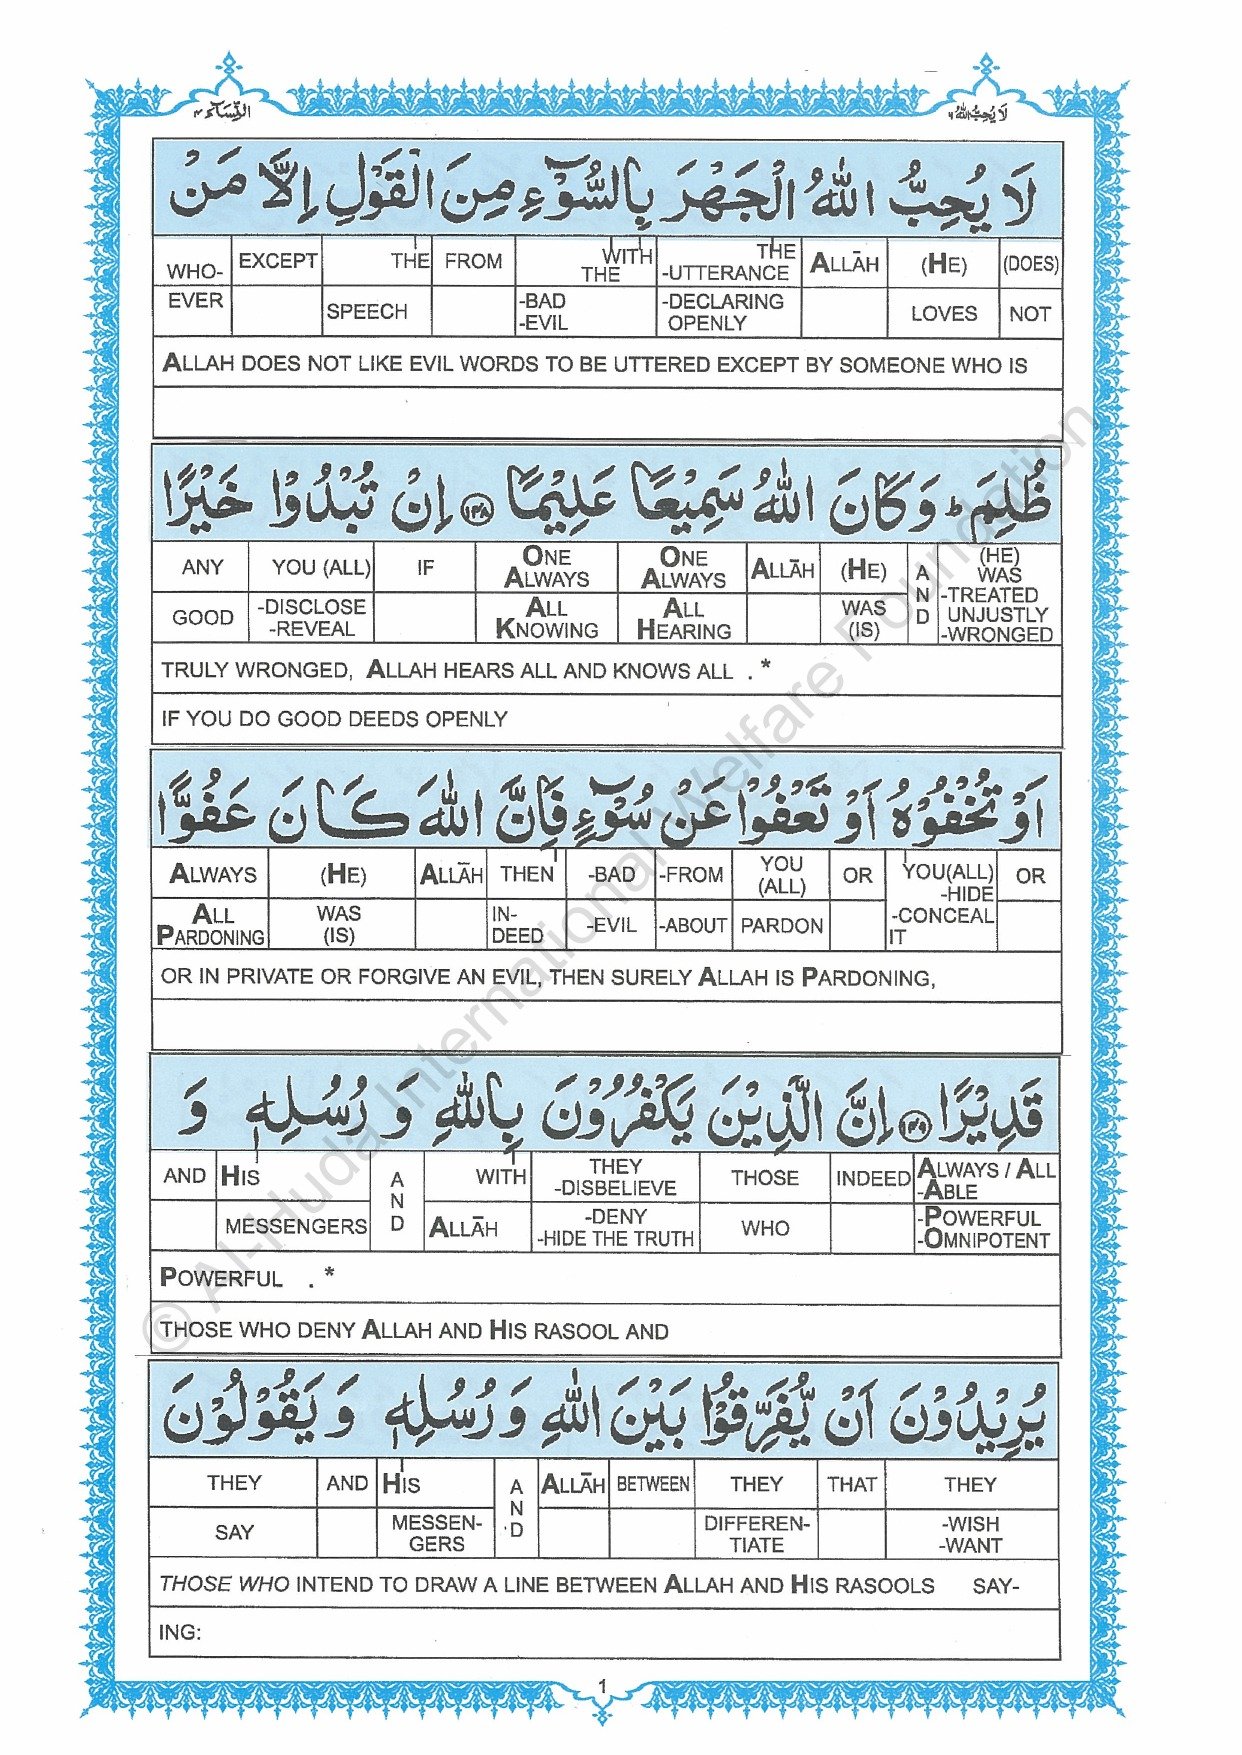 النِّسَاء ٤
لَا يُحِبُّ اللهُ ٦
لَا يُحِبُّ اللهُ الْجَهْرَ بِالسُّوْٓءِ مِنَ الْقَوْلِ اِلَّا مَنْ
WHO- EXCEPT THE FROM WITH THE THE -UTTERANCE ALLĀH (HE) (DOES)
EVER SPEECH -BAD -EVIL -DECLARING OPENLY LOVES NOT
ALLAH DOES NOT LIKE EVIL WORDS TO BE UTTERED EXCEPT BY SOMEONE WHO IS
ظُلِمَ ؕ وَ كَانَ اللهُ سَمِيْعًا عَلِيْمًا ١٤٨ اِنْ تُبْدُوْا خَيْرًا
ANY YOU (ALL) IF ONE ALWAYS ONE ALWAYS ALLĀH (HE) AND (HE) WAS
GOOD -DISCLOSE -REVEAL ALL KNOWING ALL HEARING WAS (IS) -TREATED UNJUSTLY -WRONGED
TRULY WRONGED, ALLAH HEARS ALL AND KNOWS ALL . *
IF YOU DO GOOD DEEDS OPENLY
اَوْ تُخْفُوْهُ اَوْ تَعْفُوْا عَنْ سُوْٓءٍ فَاِنَّ اللهَ كَانَ عَفُوًّا
ALWAYS (HE) ALLĀH THEN -BAD -FROM YOU (ALL) OR YOU(ALL) -HIDE OR
ALL PARDONING WAS (IS) IN-DEED -EVIL -ABOUT PARDON -CONCEAL IT
OR IN PRIVATE OR FORGIVE AN EVIL, THEN SURELY ALLAH IS PARDONING,
قَدِيْرًا ١٤٩ اِنَّ الَّذِيْنَ يَكْفُرُوْنَ بِاللهِ وَ رُسُلِهٖ وَ
AND HIS AND WITH THEY -DISBELIEVE THOSE INDEED ALWAYS / ALL -ABLE
MESSENGERS ALLĀH -DENY -HIDE THE TRUTH WHO -POWERFUL -OMNIPOTENT
POWERFUL . *
THOSE WHO DENY ALLAH AND HIS RASOOL AND
يُرِيْدُوْنَ اَنْ يُّفَرِّقُوْا بَيْنَ اللهِ وَ رُسُلِهٖ وَ يَقُوْلُوْنَ
THEY AND HIS AND ALLĀH BETWEEN THEY THAT THEY
SAY MESSEN-GERS DIFFEREN-TIATE -WISH -WANT
THOSE WHO INTEND TO DRAW A LINE BETWEEN ALLAH AND HIS RASOOLS SAY-
ING:
1
© Al-Huda International Welfare Foundation